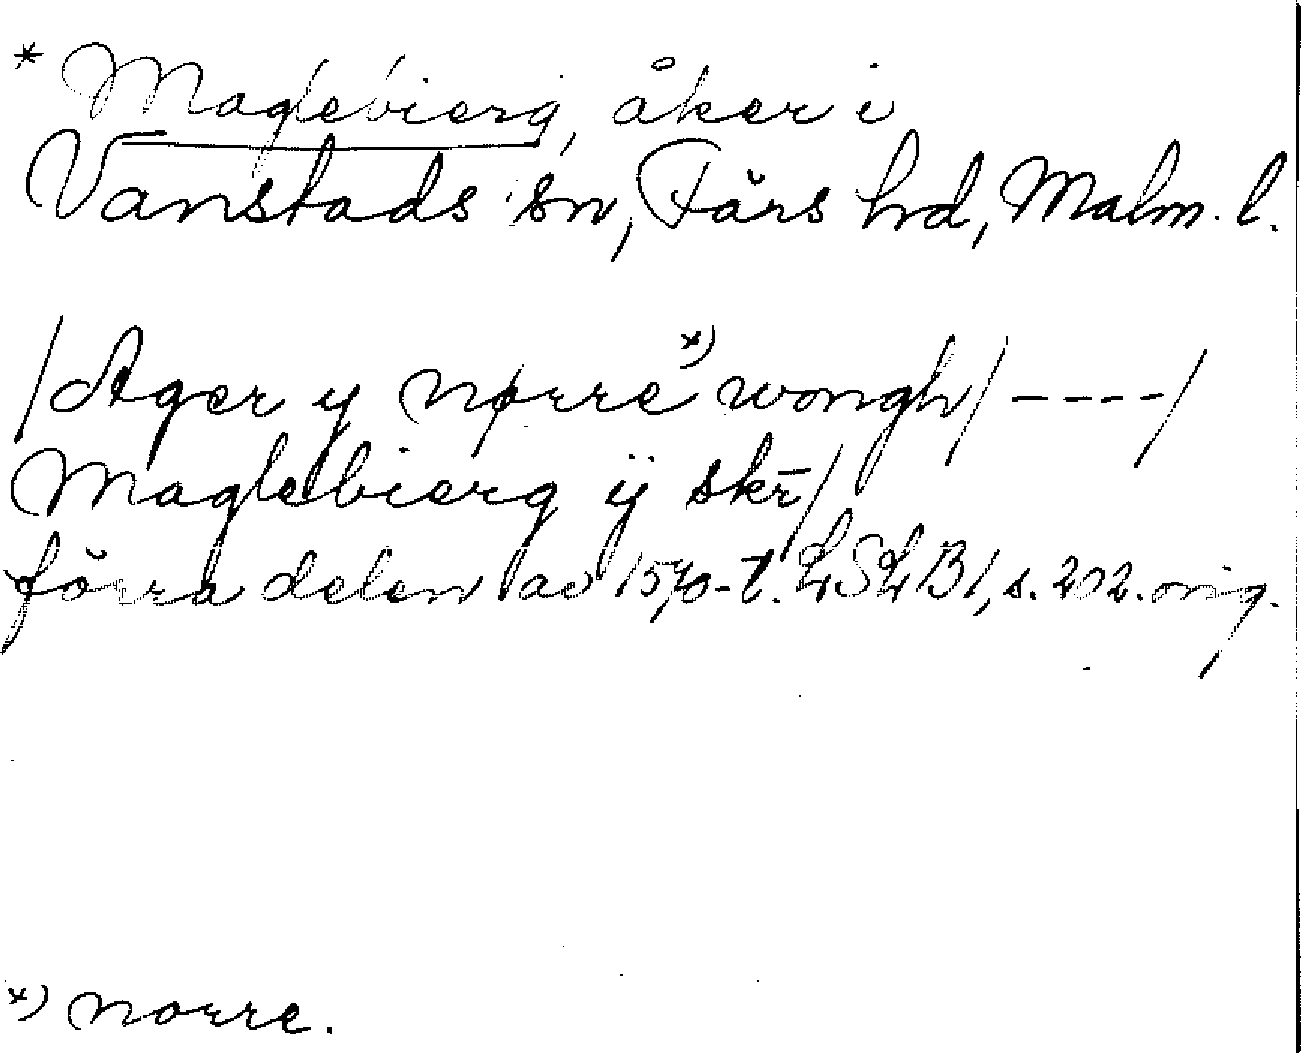 * Maglebierg, åker i
Vanstads sn, Färs hrd, Malm. l.
/Ager y nørre *) wongh/ ----/
Maglebierg ÿ skr̄/
förra delen av 1570-t. LSLB 1, s. 202. orig.
*) norre.